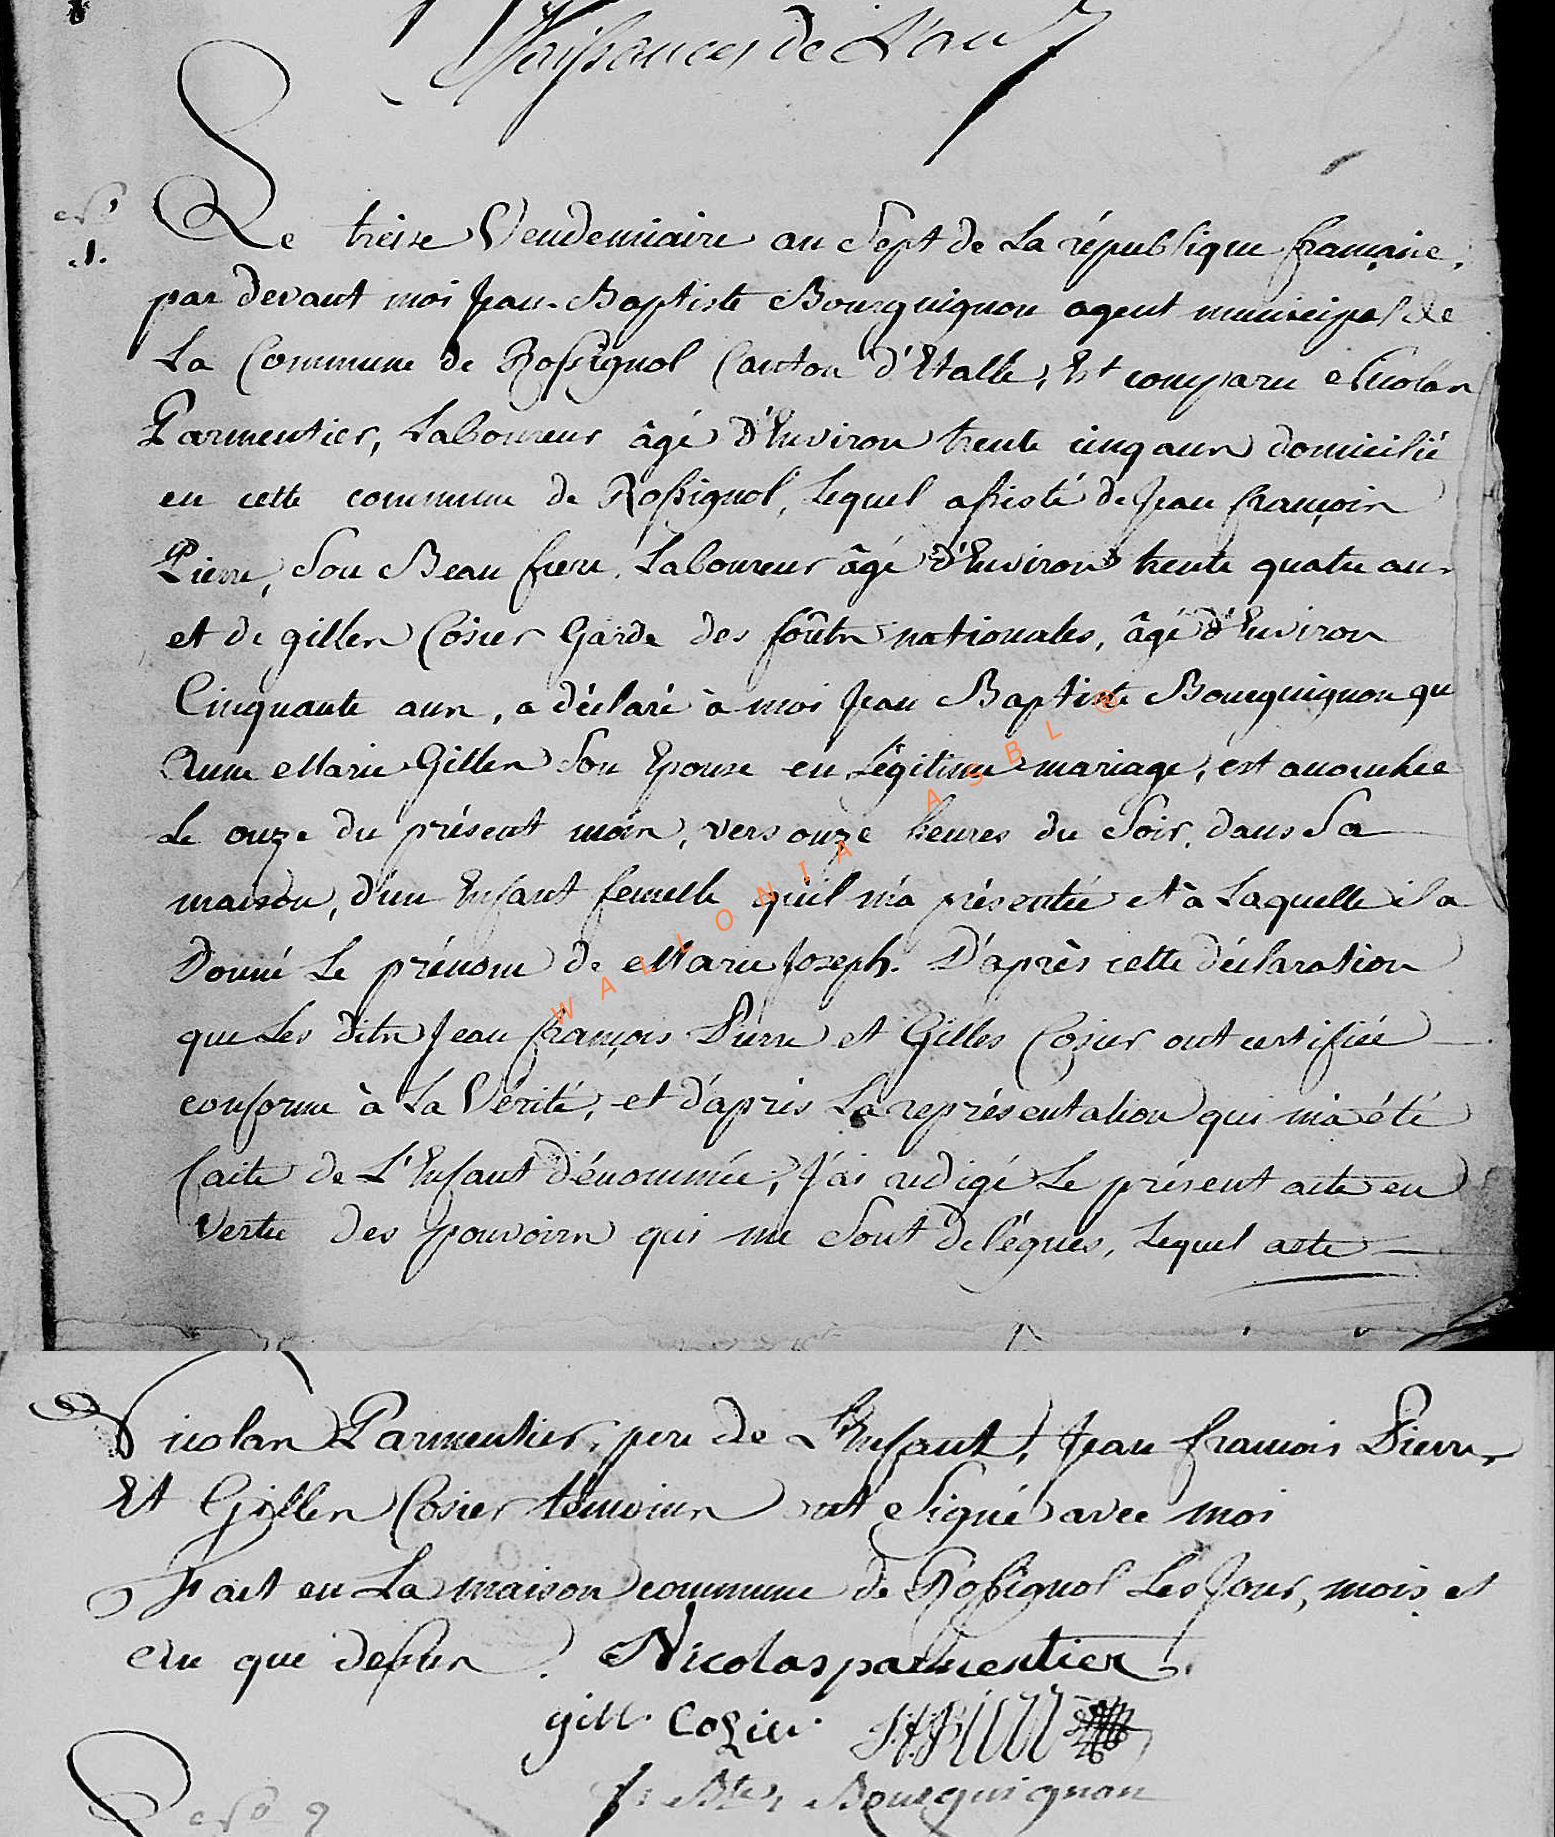 Naissances de L'an 7
N° 1.
Le treise Vendemiaire an Sept de La république française,
par devant moi Jean-Baptiste Bourguignon agent municipal de
La Commune de Rossignol Canton d'Etalle, Est comparu Nicolas
Parmentier, Laboureur âgé d'Environ trente cinq ans domicilié
en cette commune de Rossignol, Lequel assisté de Jean françois
Pierre, Son Beau frere, Laboureur âgé d'Environ trente quatre ans
et de gilles Cosier Garde des forêts nationales, âgé d'Environ
Cinquante ans, a déclaré à moi Jean Baptiste Bourguignon qu
Anne Marie Gilles Son Epouse en Légitime mariage, est accouchée
Le onze du présent mois, vers onze heures du Soir, dans Sa
maison, d'un Enfant femelle qu'il m'a présentée et à Laquelle il a
Donné Le prénom de Marie Joseph. D'après cette déclaration
que Les dits Jean françois Pierre et Gilles Cosier ont certifiée
conforme à La Vérité, et d'après La représentation qui m'a été
faite de L'Enfant dénommée, J'ai redigé Le présent acte en
Vertu des pouvoirs qui me Sont délégués, Lequel acte
Nicolas Parmentier, pere de L'Enfant, Jean francois Pierre
Et Gilles Cosier témoins ont Signé avec moi
Fait en La maison commune de Rossignol Les Jour, mois et
an que dessus. Nicolas parmentier
gill. Cozier
J. Bte. Bourguignon
N° 2
WALLONIA ASBL ®